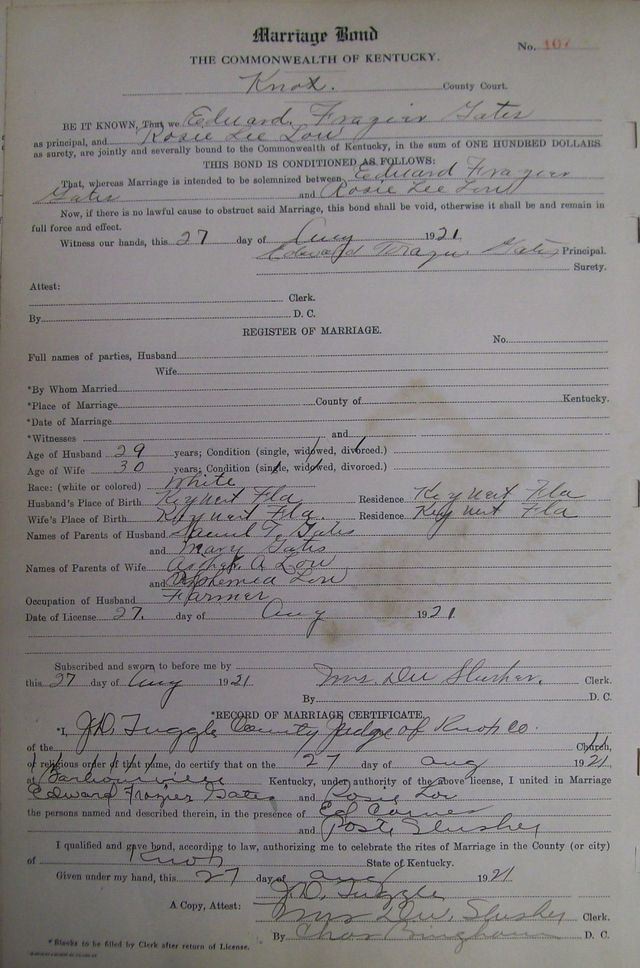 Marriage Bond
No. 107
THE COMMONWEALTH OF KENTUCKY.
Knox. County Court.
BE IT KNOWN, That we Eduard Frazier Gates
as principal, and Rosie Lee Lou
as surety, are jointly and severally bound to the Commonwealth of Kentucky, in the sum of ONE HUNDRED DOLLARS
THIS BOND IS CONDITIONED AS FOLLOWS:
That, whereas Marriage is intended to be solemnized between Eduard Frazier
Gates and Rosie Lee Lou
Now, if there is no lawful cause to obstruct said Marriage, this bond shall be void, otherwise it shall be and remain in
full force and effect.
Witness our hands, this 27 day of Aug 1921
Edward Frazier Gates Principal.
Surety.
Attest:
Clerk.
By D. C.
REGISTER OF MARRIAGE.
No.
Full names of parties, Husband
Wife
*By Whom Married
*Place of Marriage County of Kentucky.
*Date of Marriage
*Witnesses and
Age of Husband 29 years; Condition (single, widowed, divorced.)
Age of Wife 30 years; Condition (single, widowed, divorced.)
Race: (white or colored) White
Husband's Place of Birth Key West Fla Residence Key West Fla
Wife's Place of Birth Key West Fla. Residence Key West Fla
Names of Parents of Husband T. Gates
and Mary Gates
Names of Parents of Wife A Lou
and Lou
Occupation of Husband Farmer
Date of License 27. day of Aug 1921
Subscribed and sworn to before me by
this 27 day of Aug 1921 Mrs. Slusher. Clerk.
By D. C.
*RECORD OF MARRIAGE CERTIFICATE
*I, J.D. Tuggle County Judge of Knox Co.
of the Church,
or religious order of that name, do certify that on the 27 day of Aug 1921
at Barbourville Kentucky, under authority of the above license, I united in Marriage
Edward Frazier Gates and Rosie Lou
the persons named and described therein, in the presence of Ed
and Slusher
I qualified and gave bond, according to law, authorizing me to celebrate the rites of Marriage in the County (or city)
of Knox State of Kentucky.
Given under my hand, this 27 day of Aug 1921
J.D. Tuggle
A Copy, Attest: Mrs Slusher Clerk.
By Chas Bingham D. C.
* Blanks to be filled by Clerk after return of License.